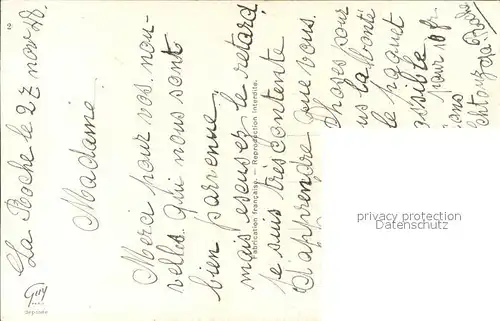 La Roche le 27 nov 28.
Madame
Merci pour vos nou-
velles qui nous sont
bien parvenue
mais escusez le retard
Je suis très contente
D'apprendre que vous.
Choses pour
us la bonté
le paquet
pour 10 fr
Fabrication française. — Reproduction interdite.
10
Guy
déposée
privacy protection
Datenschutz